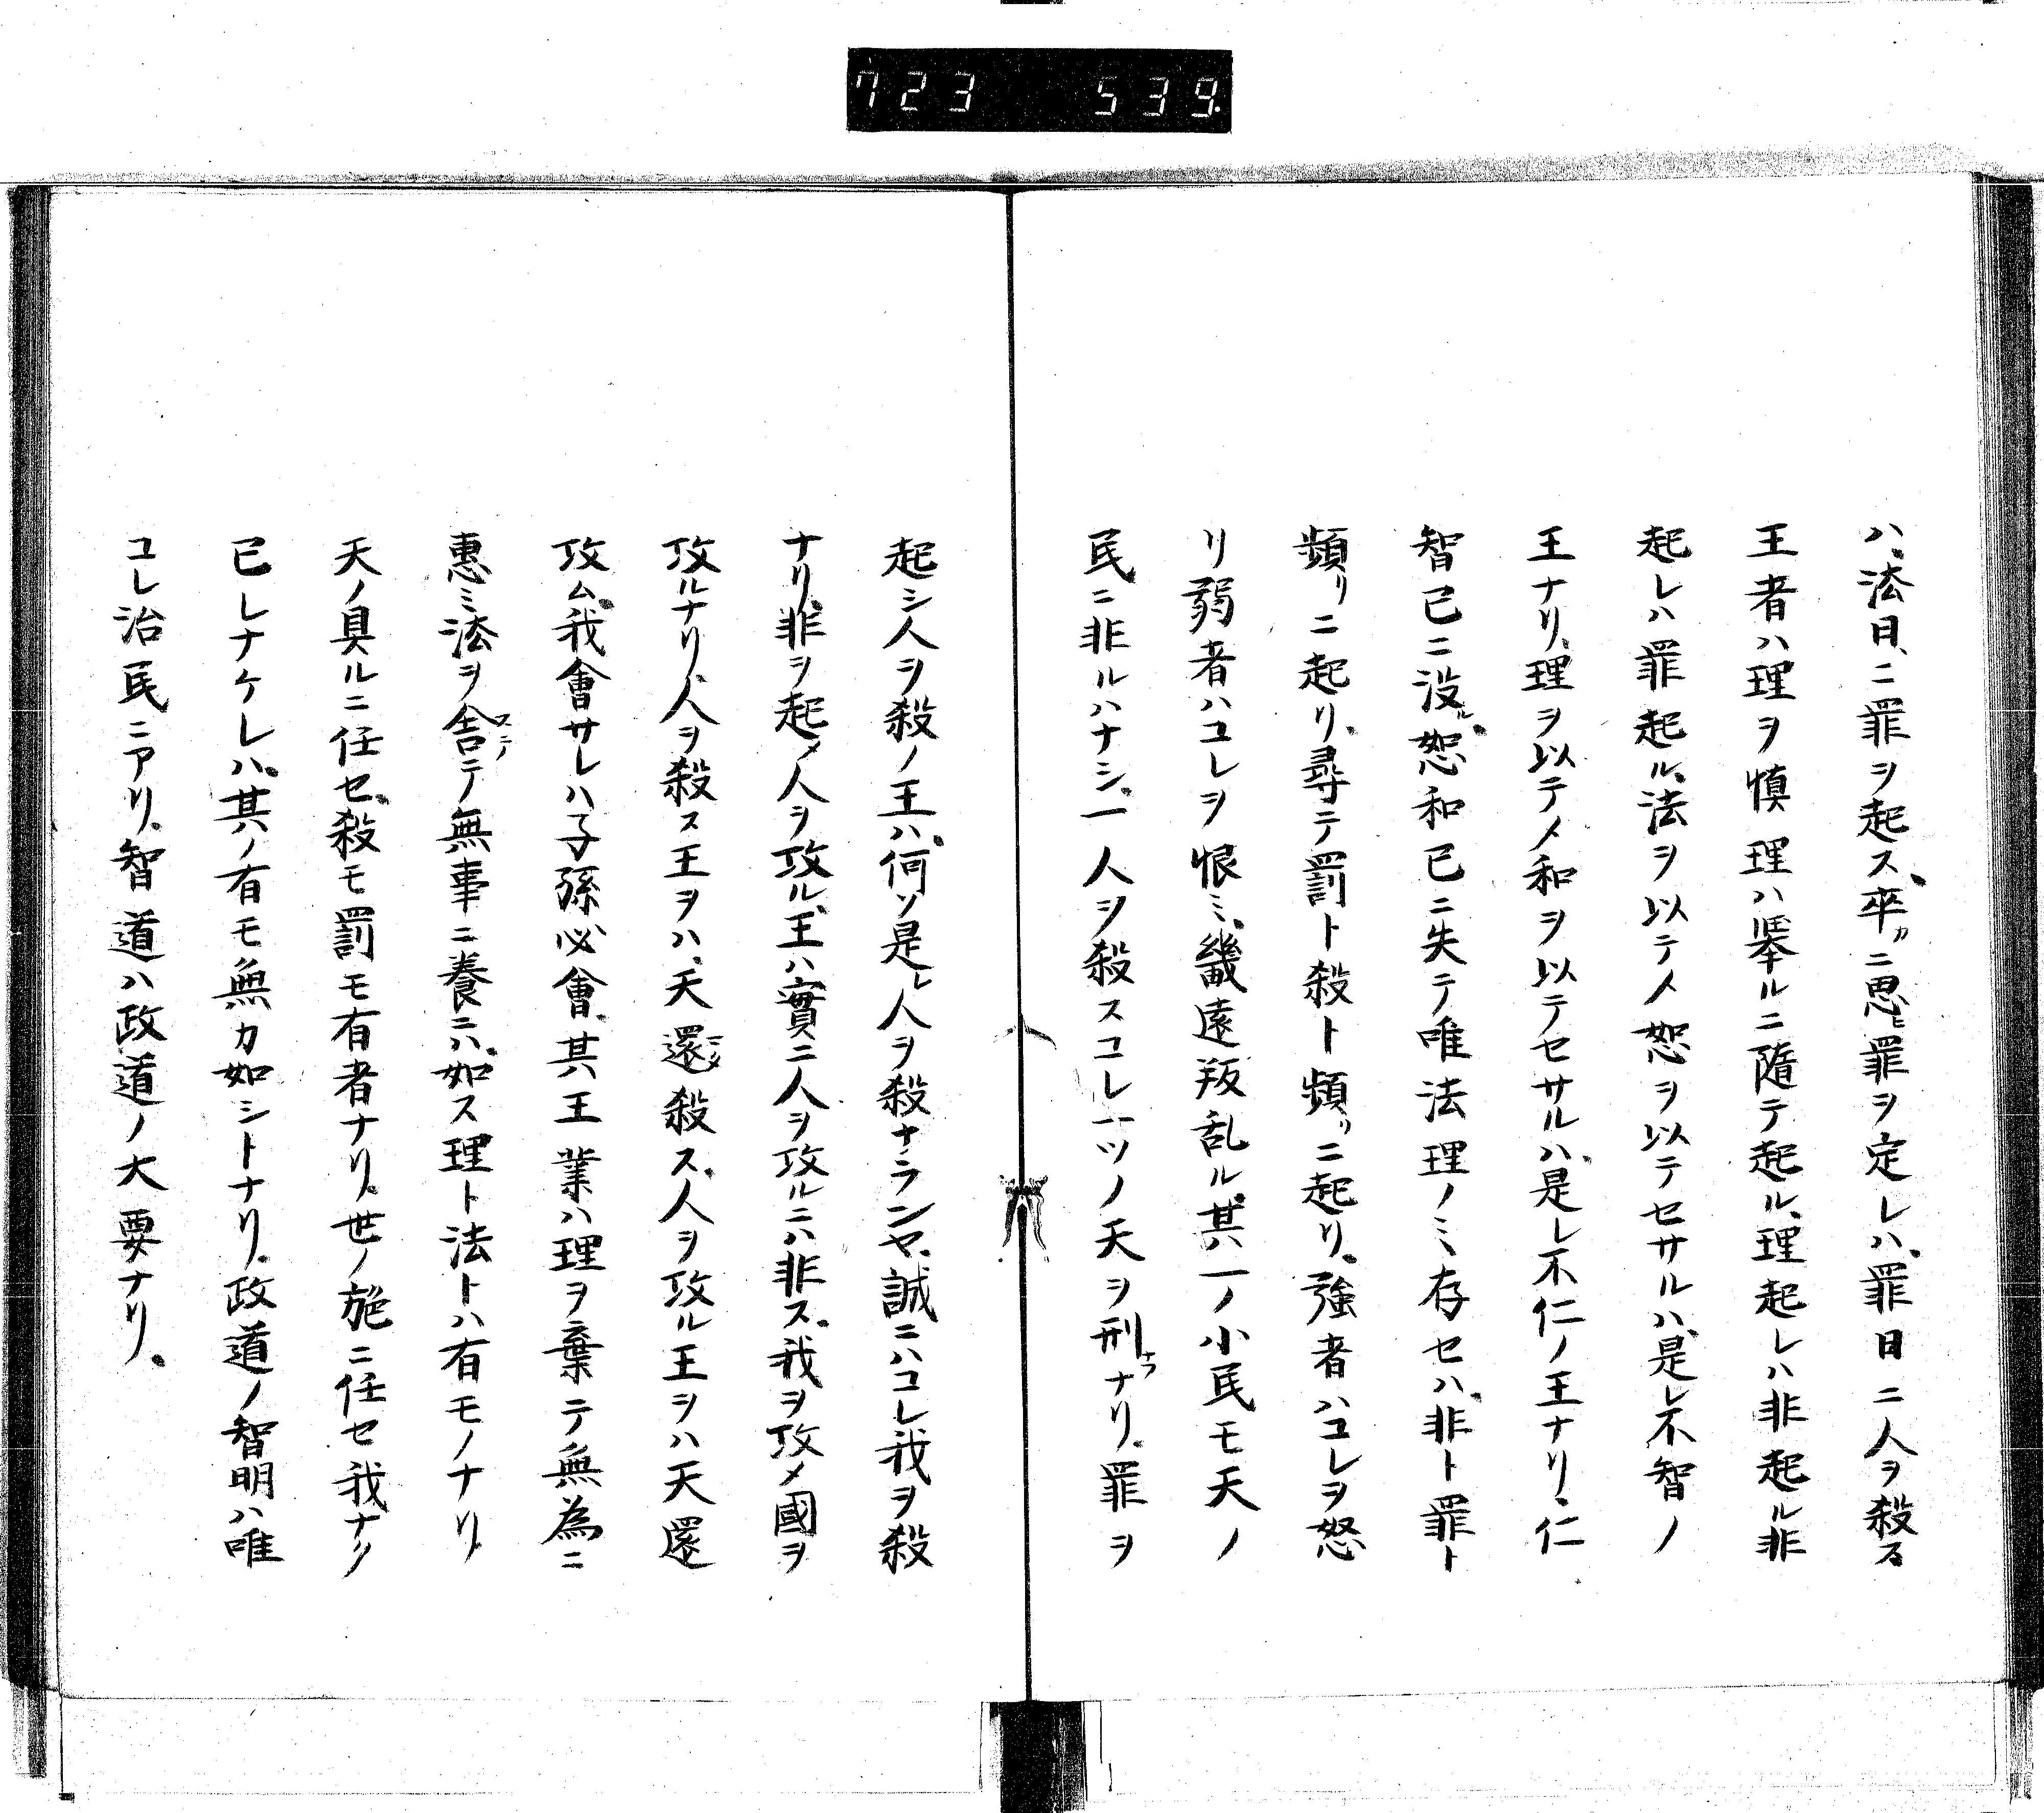 723 539.
ハ、法日、ニ罪ヲ起ス。卒カニ思ヒ罪ヲ定レハ、罪日ニ人ヲ殺ス
王者ハ理ヲ慎理ハ挙ルニ随テ起ル、理起レハ非起ル非
起レハ罪起ル、法ヲ以テメ恕ヲ以テセサルハ、是レ不智ノ
王ナリ、理ヲ以テメ和ヲ以テセサルハ、是レ不仁ノ王ナリ、仁
智已ニ没ル。恕和已ニ失テ唯法理ノミ存セハ、非ト罪ト
頻リニ起リ、尋テ罰ト殺ト頻リニ起リ。強者ハコレヲ怒
リ弱者ハコレヲ恨ミ、畿遠叛乱ル。其ハ一ノ小民モ天ノ
民ニ非ルハナシ。一人ヲ殺スコレ一ツノ天ヲ刑ナフナリ。罪ヲ
起シ人ヲ殺ノ王ハ、何ソ是レ人ヲ殺ナランヤ、誠ニハコレ我ヲ殺
ナリ、非ヲ起メ人ヲ攻ル、王ハ實ニ人ヲ攻ルニハ非ス。我ヲ攻メ國ヲ
攻ルナリ、人ヲ殺ス王ヲハ、天還殺ス、人ヲ攻ル王ヲハ天還
攻ム。我會サレハ子孫必會。其王業ハ理ヲ棄テ無為ニ
惠ミ法ヲ舎テ無事ニ養ニハ、如ス理ト法トハ有モノナリ、
天ノ具ルニ任セ、殺モ罰モ有者ナリ、世ノ施ニ任セ我ナク
已レナケレハ、其ノ有モ無カ如シトナリ。政道ノ智明ハ唯
コレ治民ニアリ。智道ハ政道ノ大要ナリ。